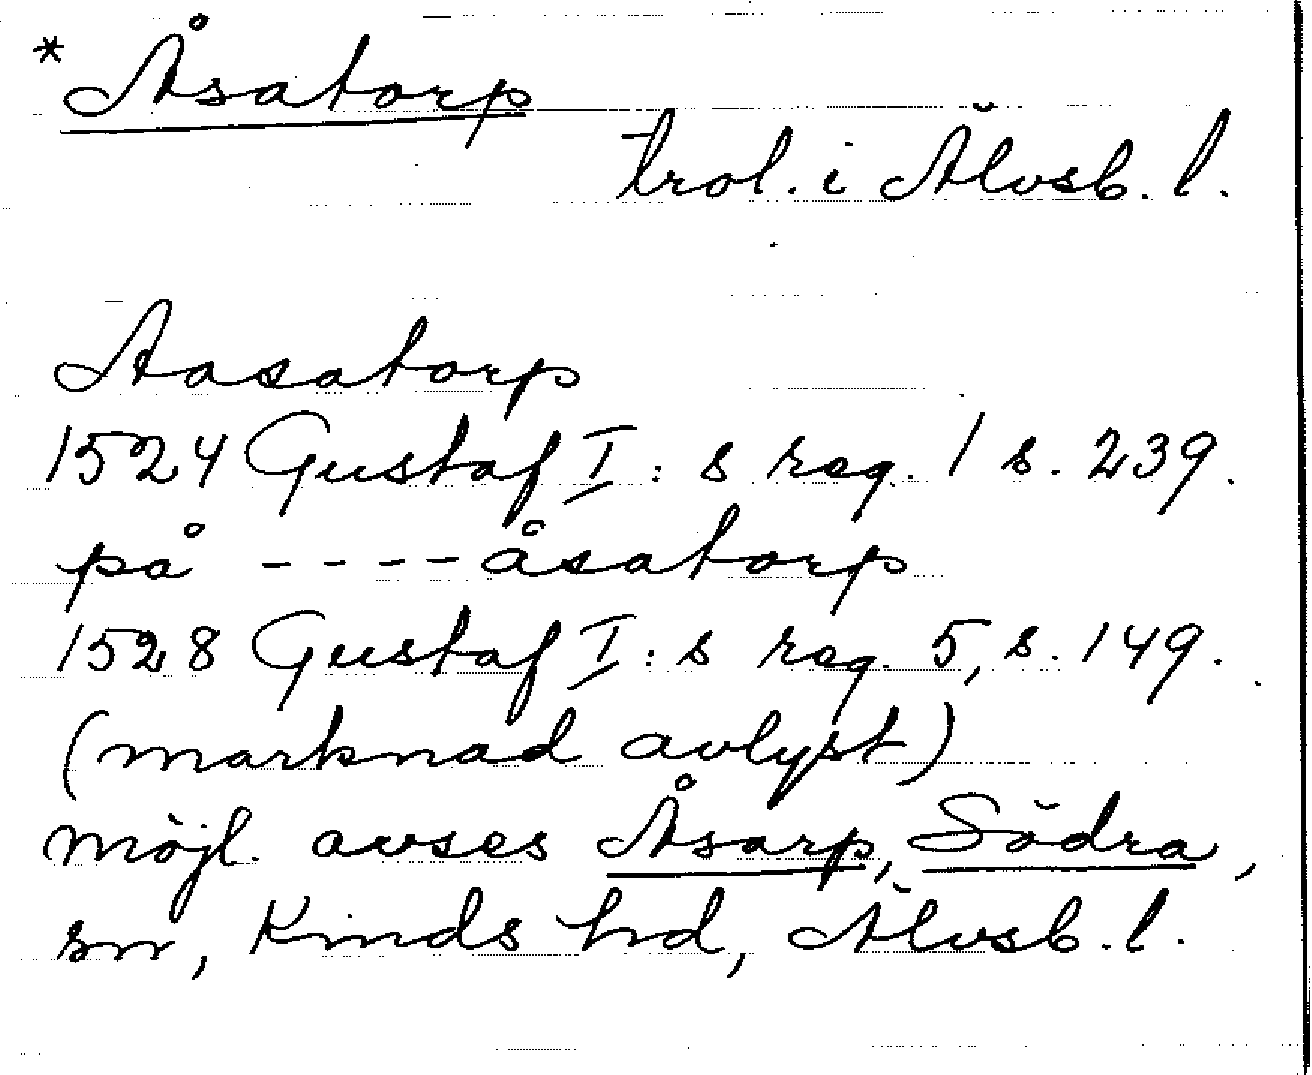 *Åsatorp
trol. i Älvsb. l.
Aasatorp
1524 Gustaf I: s reg. 1 s. 239.
på ---- åsatorp
1528 Gustaf I: s reg. 5, s. 149.
(marknad avlyst)
möjl. avses Åsarp, Södra,
sn, Kinds hd, Älvsb. l.